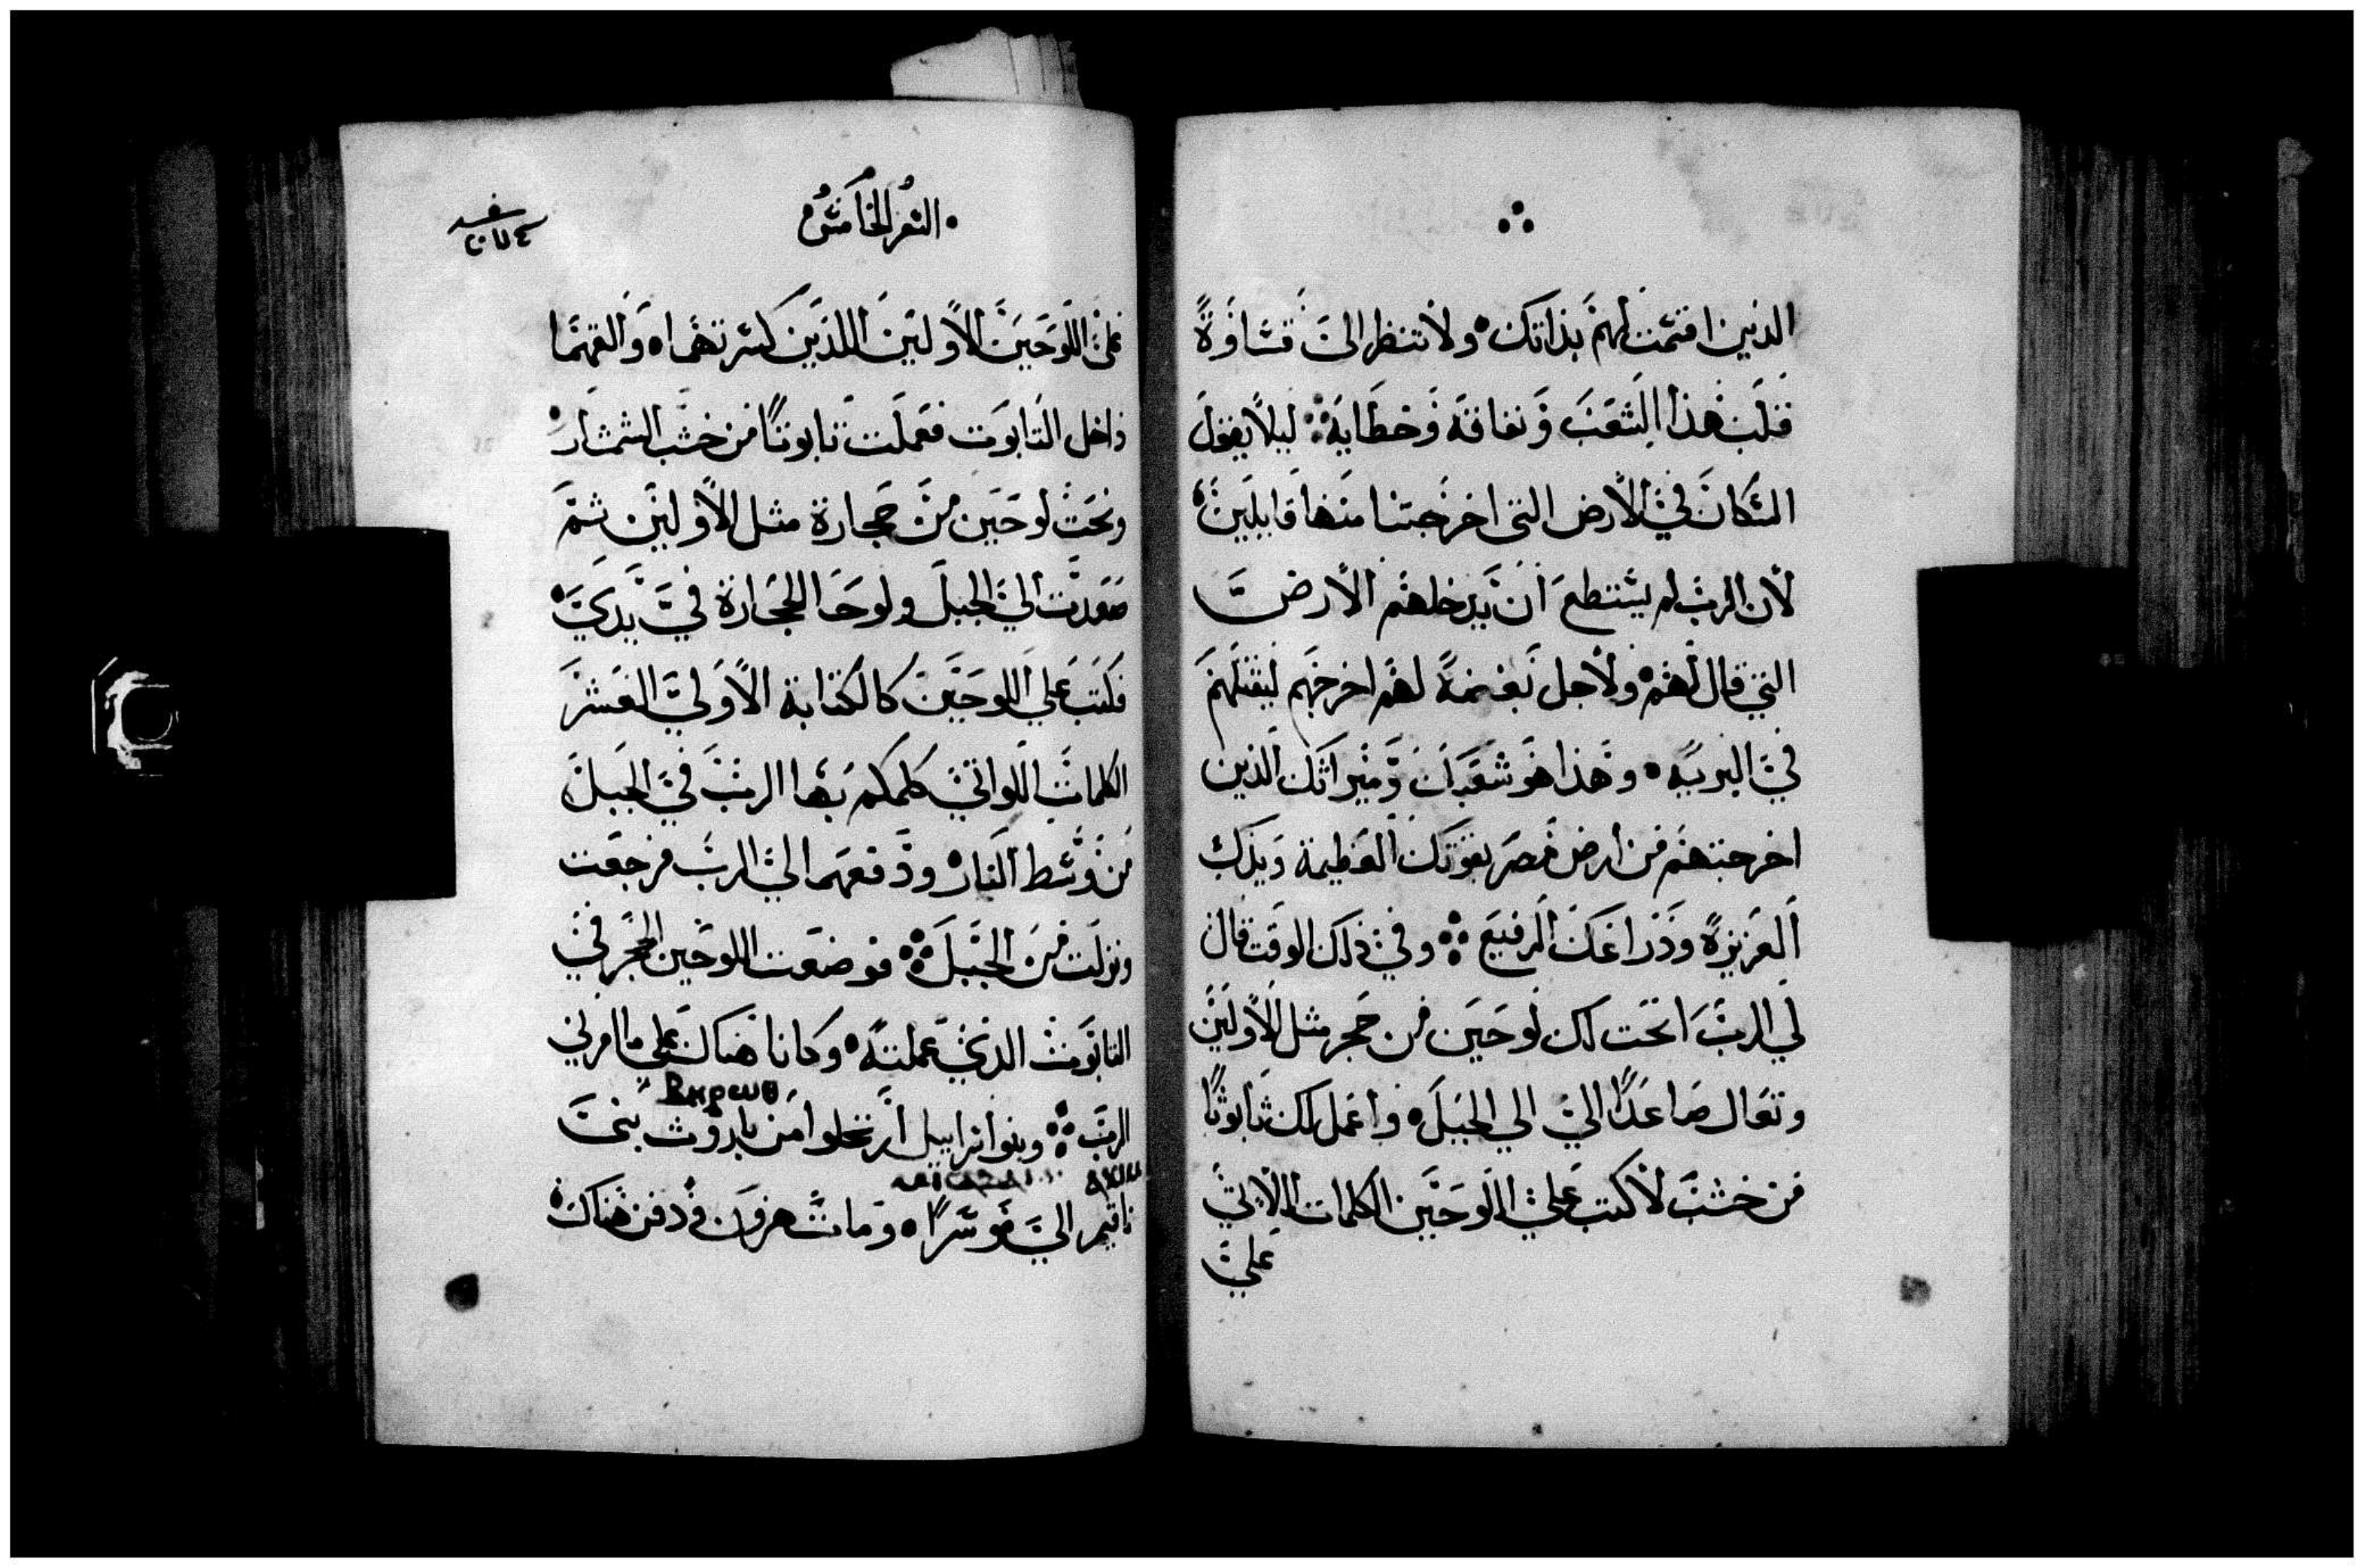 الذين اقسمت لهم بذاتك ولا تنظر الى قساوة
قلب هذا الشعب ونفاقه وخطاياه ليلا يقول
السكان في الارض التي اخرجتنا منها قايلين
لان الرب لم يستطع ان يدخلهم الارض
التي قال لهم ولاجل بغضة لهم اخرجهم ليقتلهم
في البريه وهذا هو شعبك وميراثك الذين
اخرجتهم من ارض مصر بقوتك العظيمة ويدك
العزيزة وذراعك الرفيع وفي ذلك الوقت قال
لي الرب انحت لك لوحين من حجر مثل الاولين
وتعال صاعدًا الي الي الجبل واعمل لك تابوتًا
من خشب لاكتب علي اللوحين الكلمات
علي
السفر الخامس
على اللوحين الاولين اللذين كسرتهما والقهما
داخل التابوت فعملت تابوتًا من خشب الشمشار
ونحت لوحين من حجارة مثل الاولين ثم
صعدت الي الجبل ولوحا الحجارة في يدي
فكتب علي اللوحين كالكتابة الاولي العشر
الكلمات اللواتي كلمكم بها الرب في الجبل
من وسط النار ودفعهما الي الرب فرجعت
ونزلت من الجبل فوضعت اللوحين الحجر في
التابوت الذي عملته وكانا هناك علي ما امرني
Ⲃⲏⲣⲱⲑ
الرب وبنو اسراييل ارتحلوا من باروث بني
ناقيم الي موسرا ومات هرون ودفن هناك